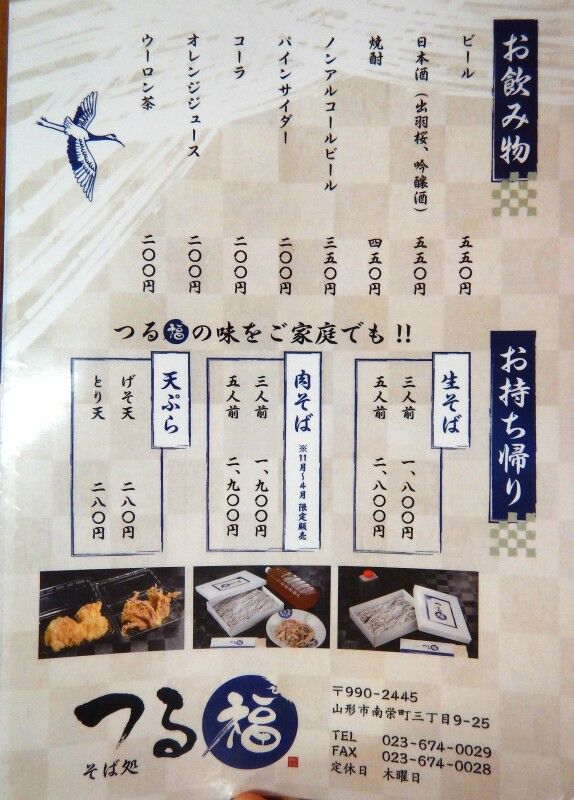 お飲み物
ビール 五五〇円
日本酒（出羽桜、吟醸酒） 五五〇円
焼酎 四五〇円
ノンアルコールビール 三五〇円
パインサイダー 二〇〇円
コーラ 二〇〇円
オレンジジュース 二〇〇円
ウーロン茶 二〇〇円
お持ち帰り
つる福の味をご家庭でも!!
生そば
三人前 一、八〇〇円
五人前 二、八〇〇円
肉そば ※11月〜4月 限定販売
三人前 一、九〇〇円
五人前 二、九〇〇円
天ぷら
げそ天 二八〇円
とり天 二八〇円
つる福
そば処
〒990-2445
山形市南栄町三丁目9-25
TEL 023-674-0029
FAX 023-674-0028
定休日 木曜日